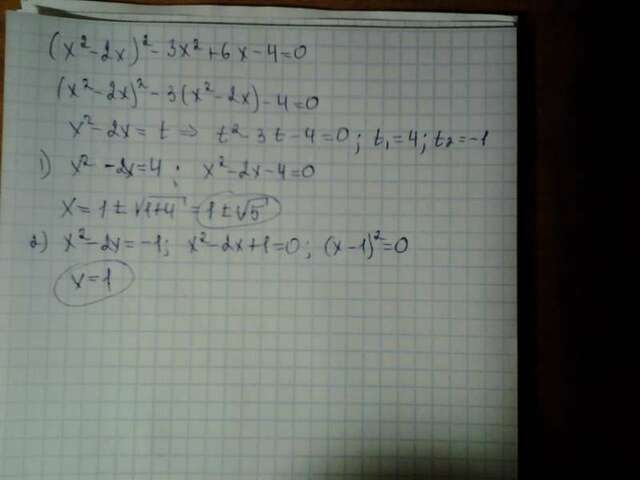 (x²-2x)²-3x²+6x-4=0
(x²-2x)²-3(x²-2x)-4=0
x²-2x=t ⇒ t²-3t-4=0; t₁=4; t₂=-1
1) x²-2x=4; x²-2x-4=0
x=1±√1+4=1±√5
2) x²-2x=-1; x²-2x+1=0; (x-1)²=0
x=1